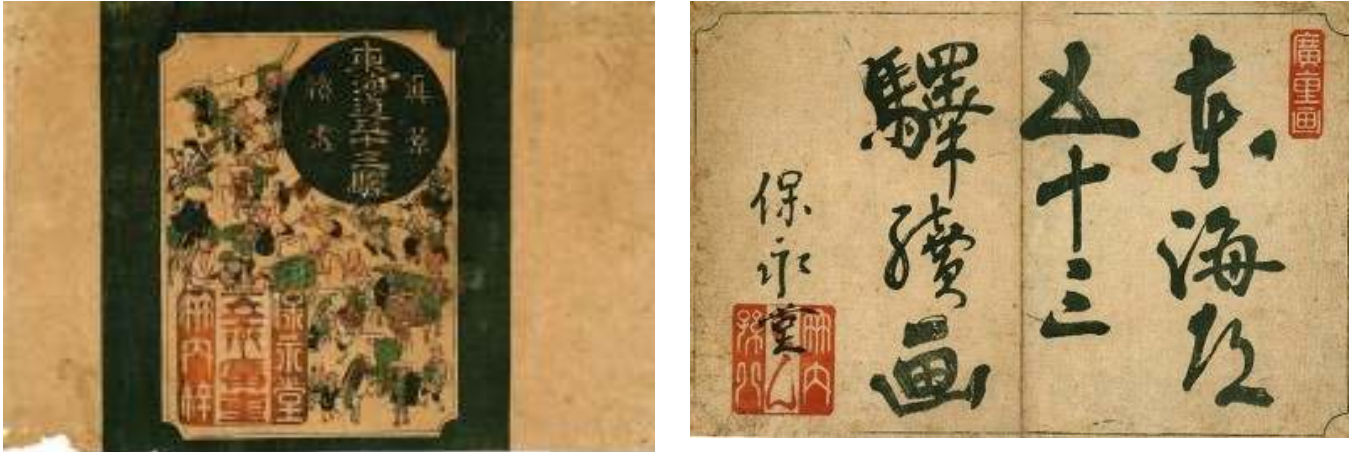 真景
東海道五十三驛
續畫
保永堂
竹内梓
廣重画
東海道
五十三
驛續画
保永堂
竹内
孫八